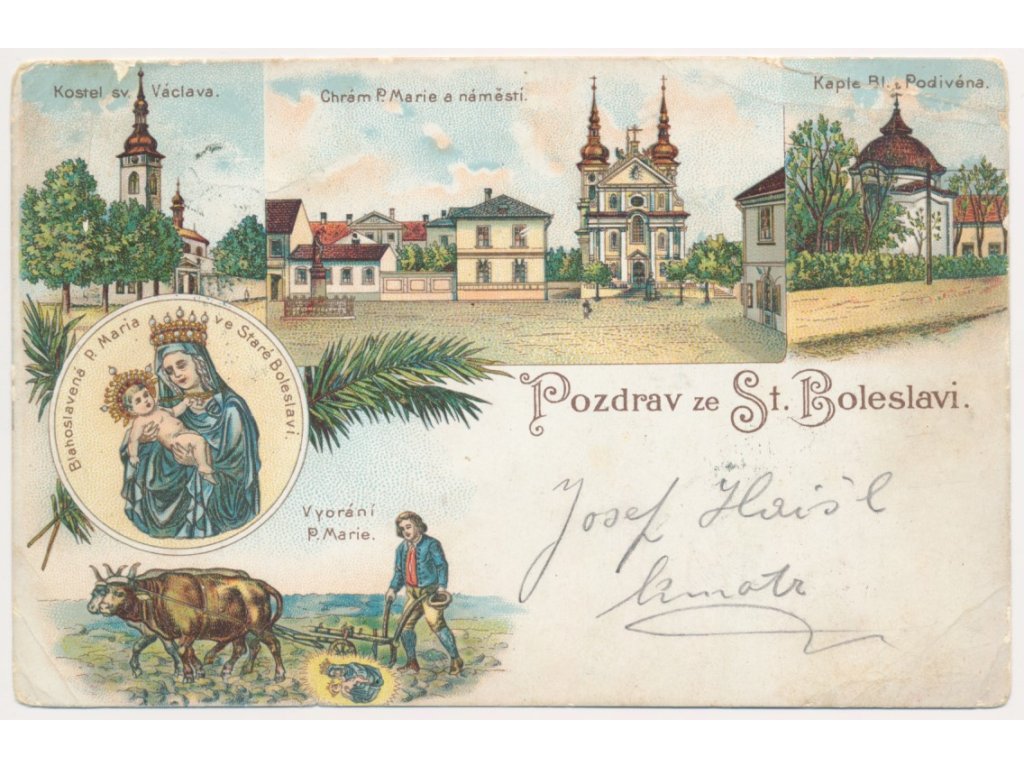 Kostel sv. Václava.
Chrám P. Marie a náměstí.
Kaple Bl. Podivéna.
Blahoslavená P. Maria ve Staré Boleslavi.
Pozdrav ze St. Boleslavi.
Vyorání
P. Marie.
Josef
kmotr